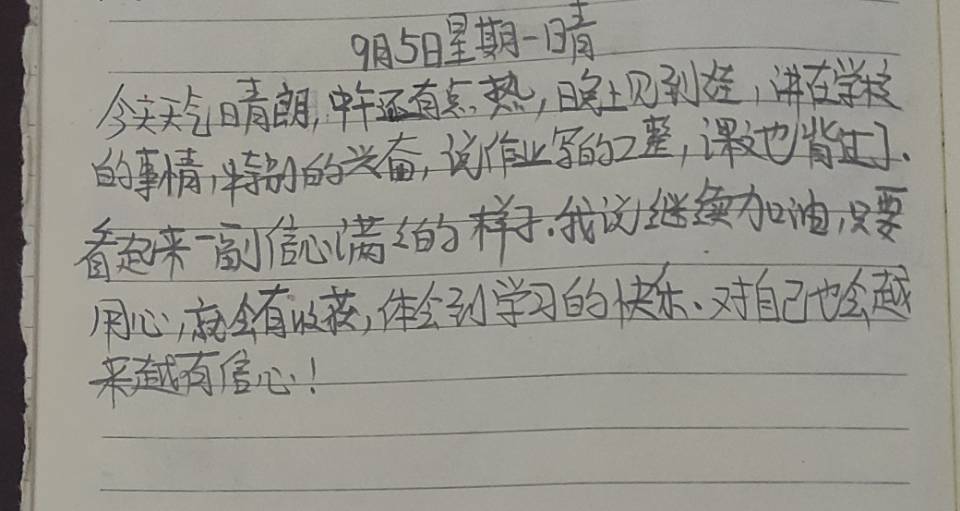 9月5日星期一晴
今天天气晴朗,中午还有点热,晚上见到娃,讲在学校
的事情,特别的兴奋,说作业写的工整,课文也背过了.
看起来一副信心满满的样子.我说继续加油,只要
用心,就会有收获,体会到学习的快乐、对自己也会越
来越有信心!